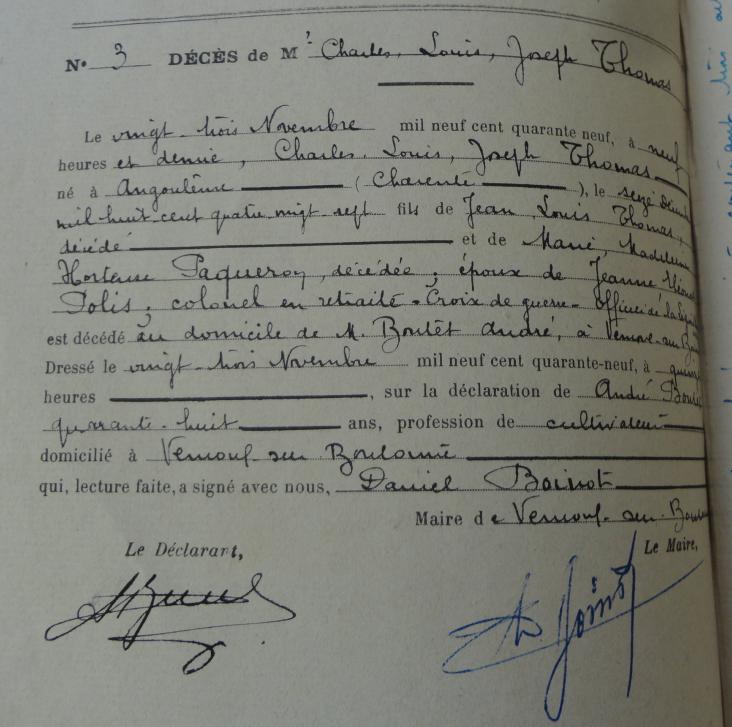 N° 3 DÉCÈS de Mr Charles, Louis, Joseph Thomas
Le vingt-trois Novembre mil neuf cent quarante neuf, à neuf
heures et demie, Charles, Louis, Joseph Thomas
né à Angoulême (Charente), le seize
mil huit cent quatre vingt sept fils de Jean Louis Thomas,
décédé et de Marie, Madeleine
Hortense Paqueron, décédée; époux de Jeanne
Polis; colonel en retraite - Croix de guerre - Officier de la
est décédé au domicile de M. Boutet André, à
Dressé le vingt trois Novembre mil neuf cent quarante-neuf, à
heures, sur la déclaration de André
quarante-huit ans, profession de cultivateur
domicilié à sur Boutonne
qui, lecture faite, a signé avec nous, Daniel Boinot
Maire de sur
Le Déclarant, Le Maire,